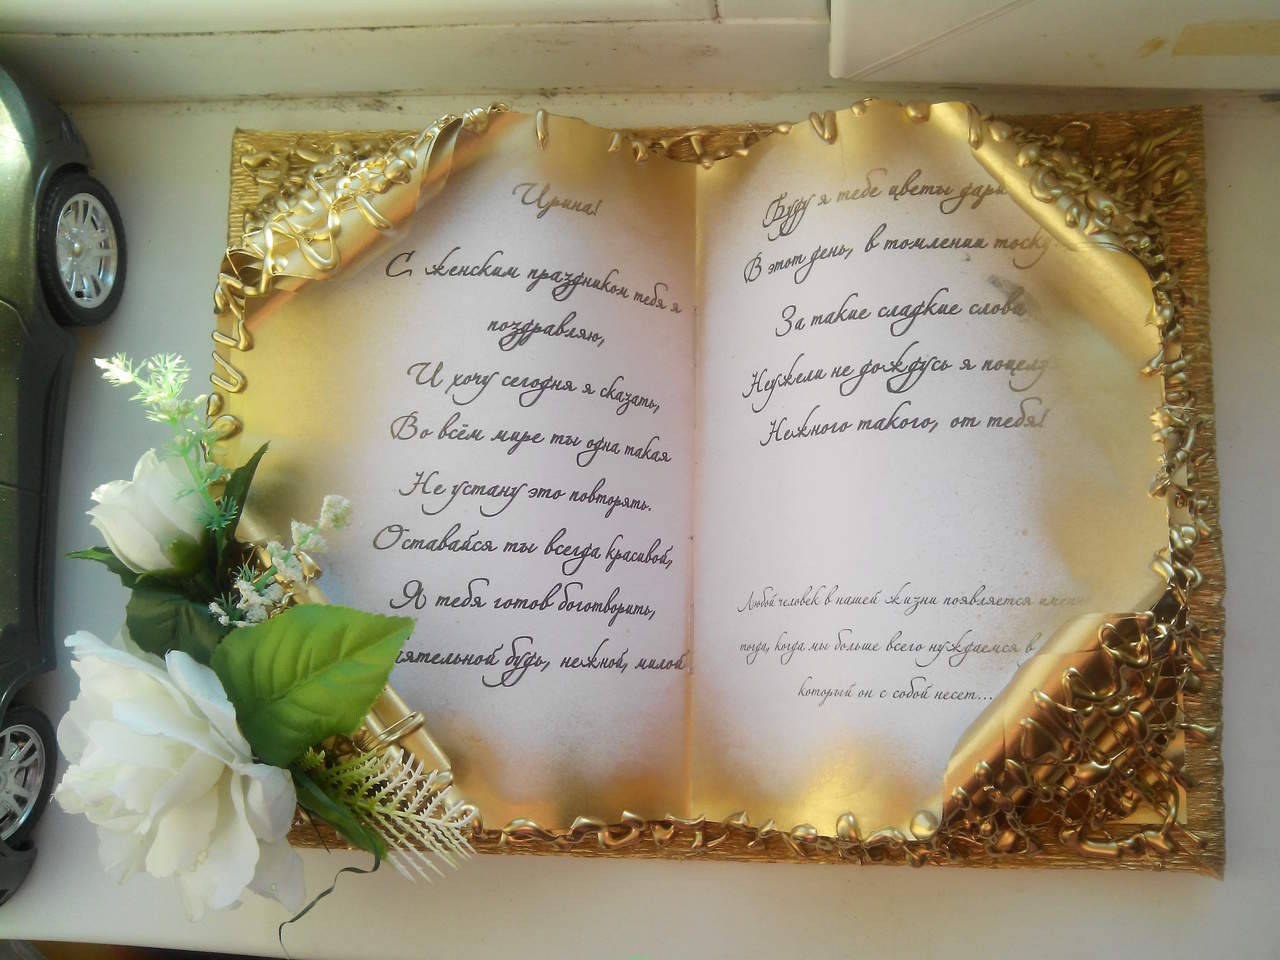 Ирина!
С женским праздником тебя я
поздравляю,
И хочу сегодня я сказать,
Во всём мире ты одна такая
Не устану это повторять.
Оставайся ты всегда красивой,
Я тебя готов боготворить,
будь, нежной, милой
Буду я тебе цветы
В этот день, в томлении
За такие сладкие слова
Неужели не дождусь я
Нежного такого, от тебя!
Любой человек в нашей жизни появляется
тогда, когда мы больше всего нуждаемся в
который он с собой несет...